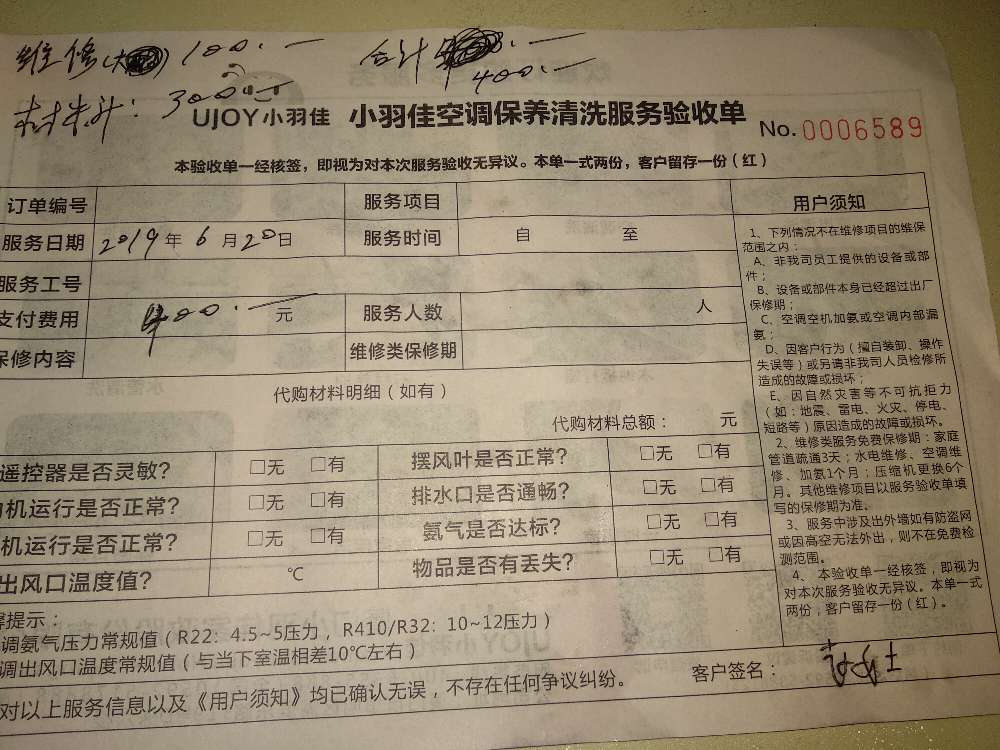 维修(大 ) 100.一 合计 400.一
材料: 300
UJOY小羽佳 小羽佳空调保养清洗服务验收单 No.0006589
本验收单一经核签，即视为对本次服务验收无异议。本单一式两份，客户留存一份（红）
订单编号 服务项目
服务日期 2019年6月20日 服务时间 自 至
服务工号
支付费用 400.一 元 服务人数 人
保修内容 维修类保修期
代购材料明细（如有）
代购材料总额： 元
遥控器是否灵敏? □无 □有 摆风叶是否正常? □无 □有
机运行是否正常? □无 □有 排水口是否通畅? □无 □有
机运行是否正常? □无 □有 氨气是否达标? □无 □有
出风口温度值? ℃ 物品是否有丢失? □无 □有
提示：
调氨气压力常规值（R22：4.5~5压力，R410/R32：10~12压力）
调出风口温度常规值（与当下室温相差10℃左右）
对以上服务信息以及《用户须知》均已确认无误，不存在任何争议纠纷。
客户签名：
用户须知
1、下列情况不在维修项目的维保
范围之内：
A、非我司员工提供的设备或部
件；
B、设备或部件本身已经超过出厂
保修期；
C、空调空机加氨或空调内部漏
氨；
D、因客户行为（擅自装卸、操作
失误等）或另请非我司人员检修所
造成的故障或损坏；
E、因自然灾害等不可抗拒力
（如：地震、雷电、火灾、停电、
短路等）原因造成的故障或损坏。
2、维修类服务免费保修期：家庭
管道疏通3天；水电维修、空调维
修、加氨1个月；压缩机更换6个
月。其他维修项目以服务验收单填
写的保修期为准。
3、服务中涉及出外墙如有防盗网
或因高空无法外出，则不在免费检
测范围。
4、本验收单一经核签，即视为
对本次服务验收无异议。本单一式
两份，客户留存一份（红）。